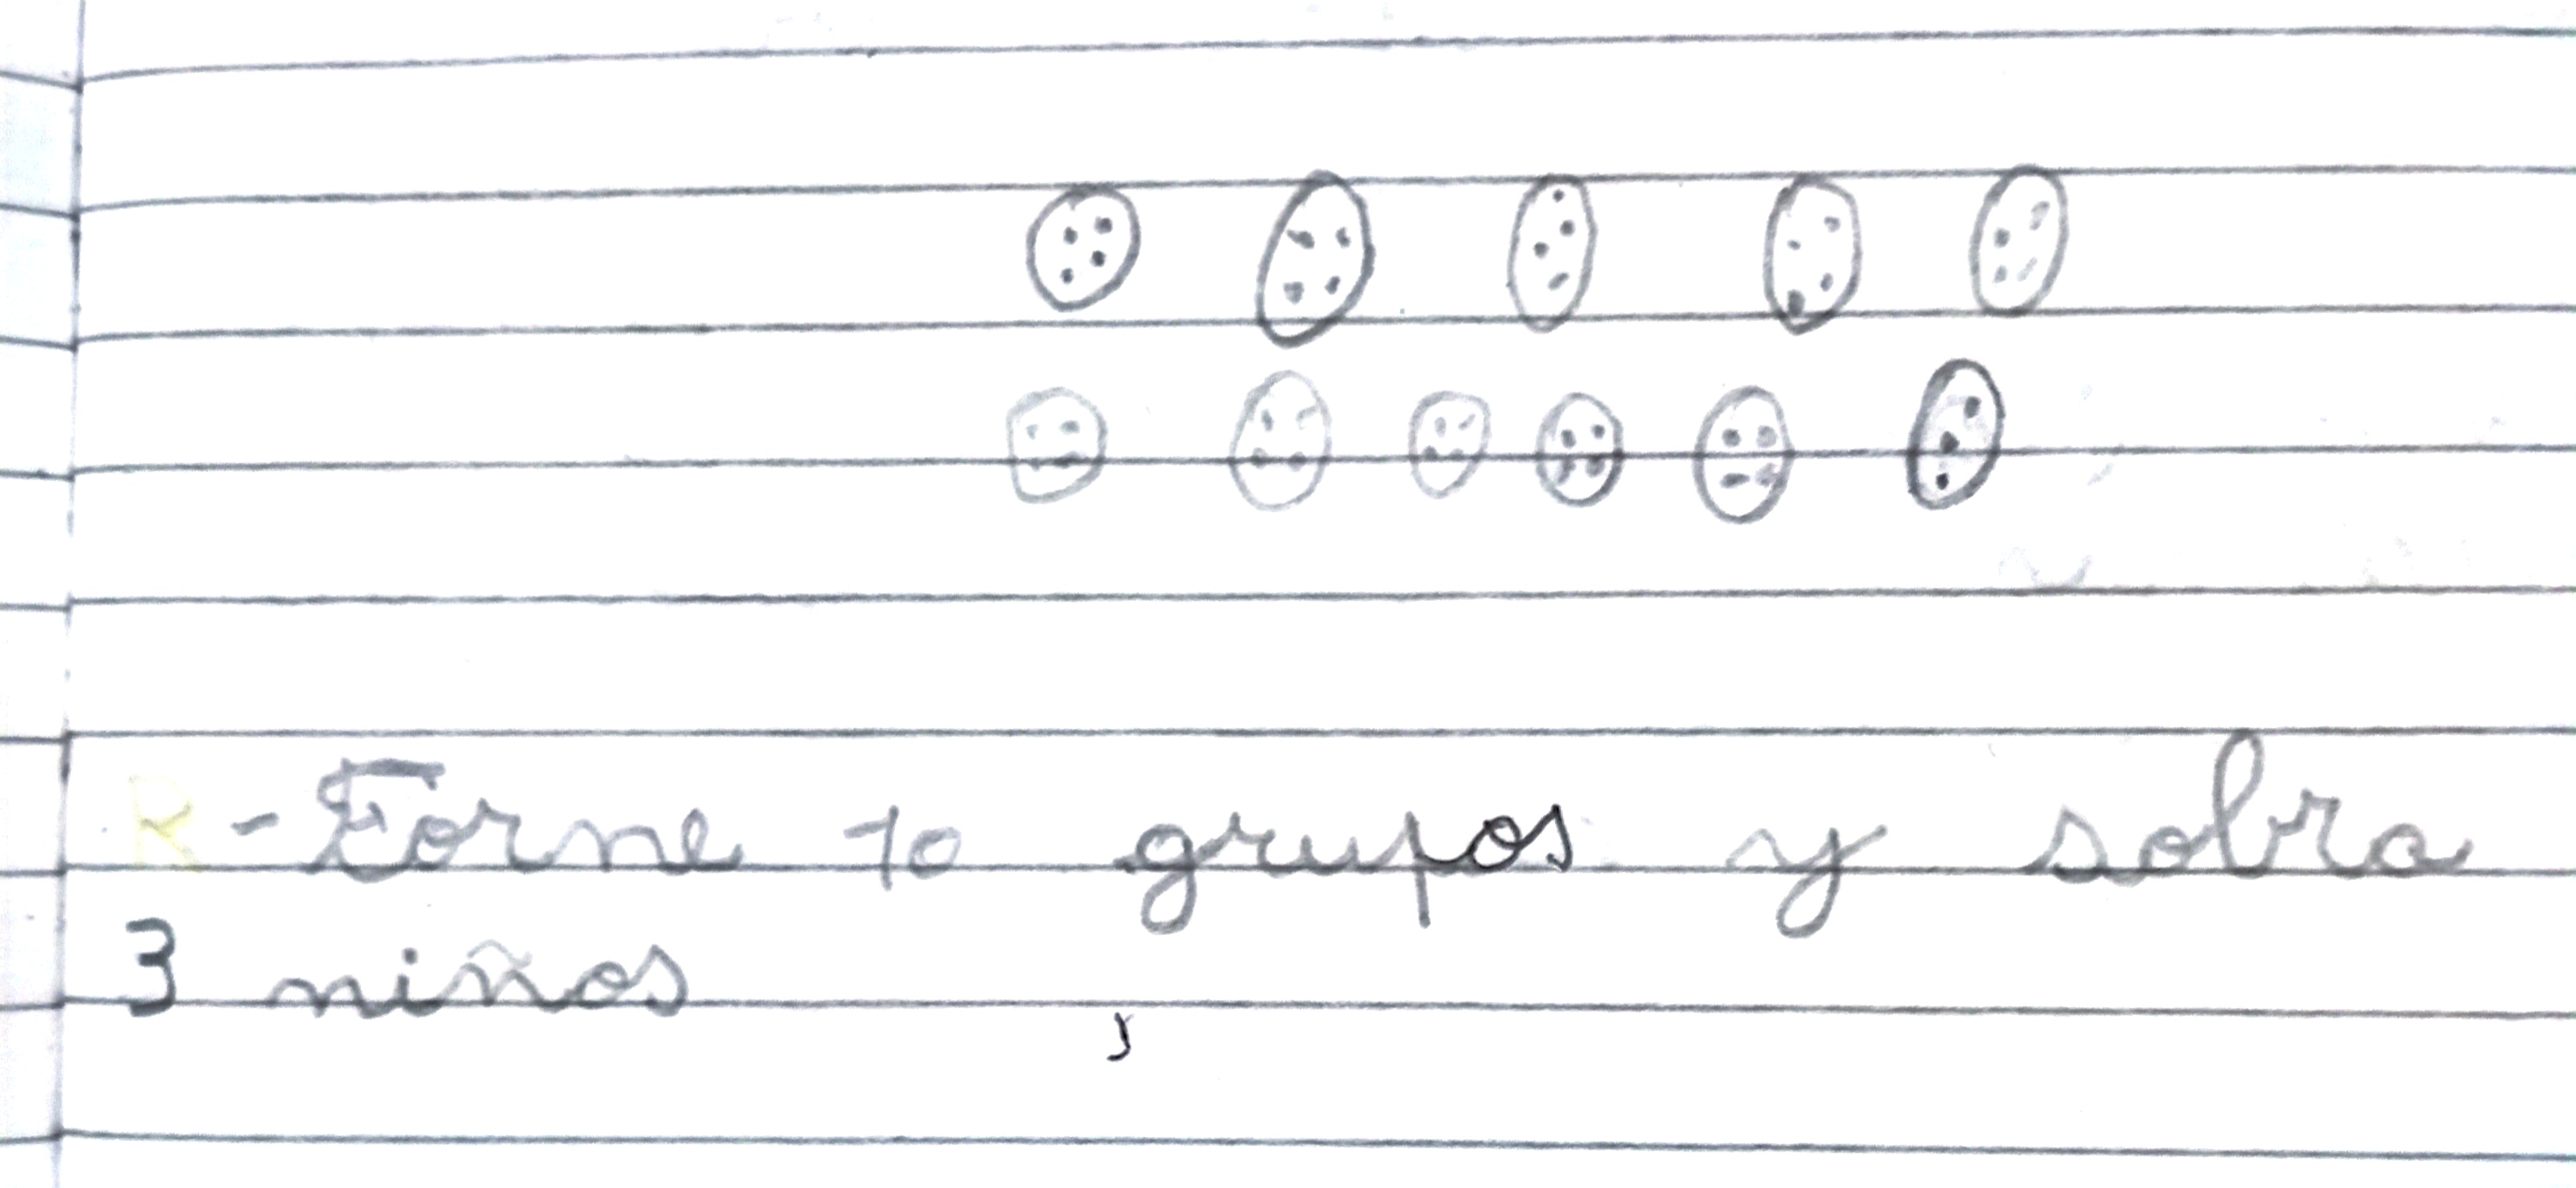 R - Forne 10 grupos y sobra
3 niños